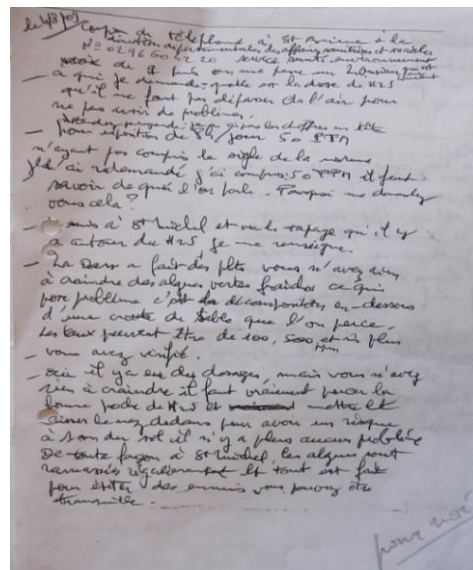 le 4/8/09 Coup de téléphone à St Brieuc à la
direction départementale des affaires sanitaires et sociales
N° 0296604220 service santé environnement
voix de et puis on me passe un Monsieur qui est
— à qui je demande quelle est la dose de H2S
qu'il ne faut pas dépasser de l'air pour
ne pas avoir de problèmes.
les chiffres en tête
— pour exposition de 8h/jour 50 PPM
n'ayant pas compris le sigle de la norme
j'ai redemandé j'ai compris 50 PPM il faut
savoir de quoi l'on parle. Pourquoi me demandez
vous cela ?
— suis à St Michel et vu le tapage qu'il y
a autour du H2S je me renseigne.
— La Dass a fait des vous n'avez rien
à craindre des algues vertes fraîches ce qui
pose problème c'est la décomposition en-dessous
d'une croute de sable que l'on perce.
Les taux peuvent être de 100, 500 et plus
ppm
— vous avez vérifié.
— oui il y a eu des dosages, mais vous n'avez
rien à craindre il faut vraiment percer la
bonne poche de H2S et mettre et
le nez dedans pour avoir un risque
à 1 m du sol il n'y a plus aucun problème
De toute façon à St Michel, les algues sont
ramassées régulièrement et tout est fait
pour éviter des ennuis vous pouvez être
tranquille.
pour moi